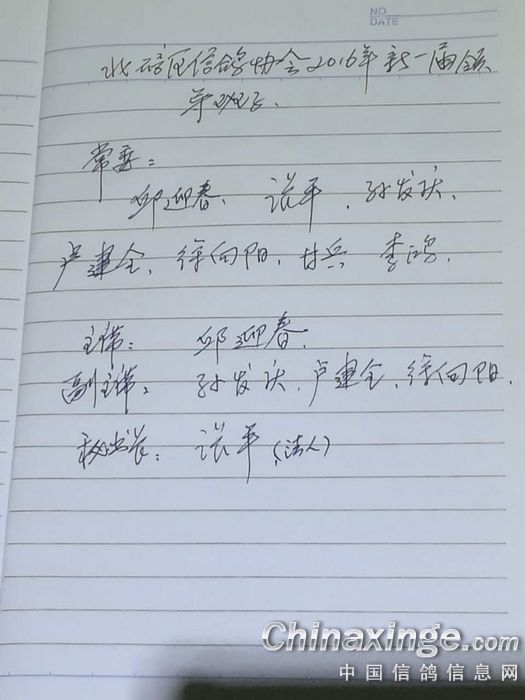 NO.
DATE
北碚区信鸽协会2016年新一届领
导班子.
常委:
邱迎春、谈平、孙发庆、
卢建全、徐向阳、甘兵 李鸿
主席: 邱迎春.
副主席: 孙发庆、卢建全、徐向阳.
秘书长: 谈平(法人)
Chinaxinge.com
中国信鸽信息网